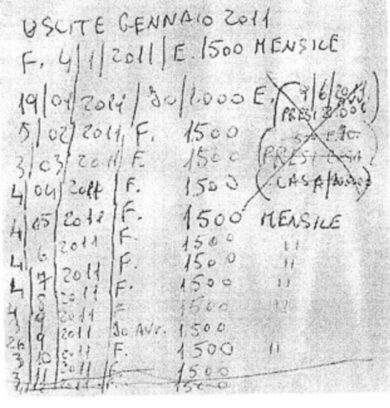 USCITE GENNAIO 2011
F. 4/1/2011/E. 1500 MENSILE
19/01/2011/ Io/1.000 E. (9/6/2011
PRESI 2.000
5/02/2011/F. 1500
3/03/2011/F 1500 (PRESI CASA)
4/04/2011/F. 1500 (CASA
4/05/2011/F. 1500 MENSILE
4/6/2011/F. 1500 "
4/7/2011/F. 1500 "
4/8/2011 F. 1500 "
9/2011 Io AVV. 1500
3/10/2011 F. 1500 "
3/11/2011 F. 1500
2011 1500